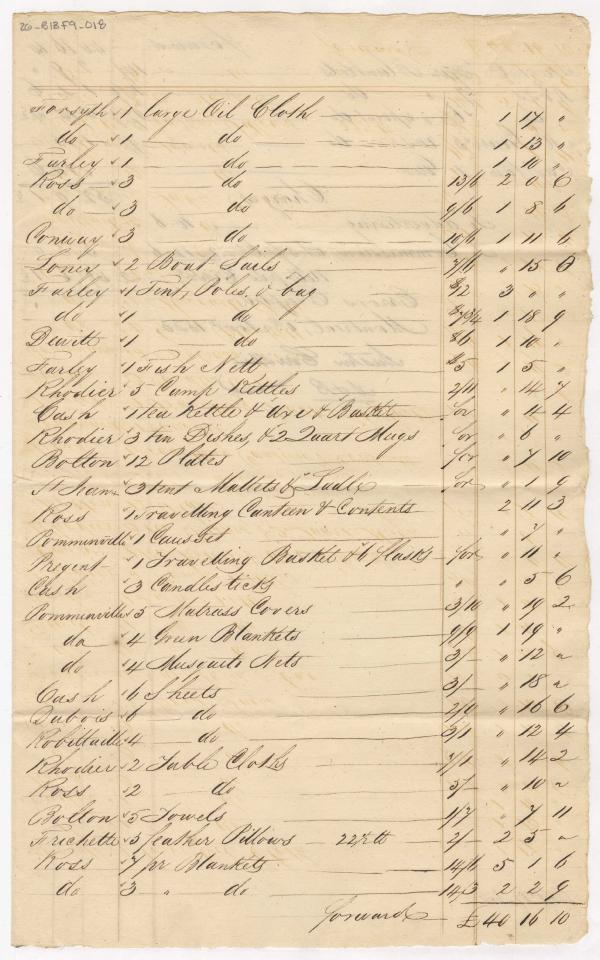 26-B1BF9_018
Forsyth 1 large Oil Cloth 1 17 "
do 1 do 1 13 "
Farley 1 do 1 10 "
Ross 3 do 13/6 2 0 6
do 3 do 9/6 1 8 6
Conway 3 do 10/6 1 11 6
Loney 2 Boat Sails 7/6 " 15 0
Farley 1 Tent, Poles, & bag $12 3 " "
do 1 do 1 18 9
Dewitt 1 do $6 1 10 "
Farley 1 Fish Nett $5 1 5 "
Rhodier 5 Camp Kettles 2/11 " 14 7
Cash 1 Tea Kettle & Axe & Basket for " 14 4
Rhodier 3 tin Dishes, & 2 Quart Mugs for " 6 "
Bolton 12 Plates for " 7 10
St Jean 3 tent Mallets & Ladle for " 1 9
Ross 1 Travelling Canteen & Contents 2 11 3
Pomminville 1 Causset " 7 "
Pregent 1 Travelling Basket & 6 flasks for " 11 "
Cash 3 Candlesticks " " 5 6
Pomminville 5 Matrass Covers 3/10 " 19 2
do 4 Green Blankets 9/9 1 19 "
do 4 Musquito Nets 3/- " 12 "
Cash 6 Sheets 3/- " 18 "
Dubois 6 do 2/9 " 16 6
Robittaille 4 do 3/1 " 12 4
Rhodier 2 Table Cloths 7/1 " 14 2
Ross 2 do 5/- " 10 "
Bolton 5 Towels 1/7 " 7 11
Frichette 3 feather Pillows 22½ lb 2/- 2 5 "
Ross 7 pr Blankets 14/6 5 1 6
do 3 " do 14/3 2 2 9
forward £40 16 10